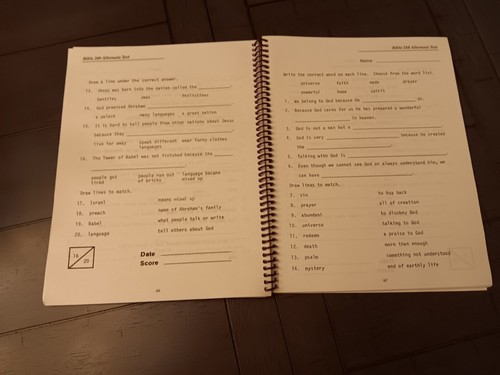 Bible 206 Alternate Test
Draw a line under the correct answer.
13. Jesus was born into the nation called the
Gentiles Jews
14. God promised Abraham
many languages a great nation
15. It is hard to tell people from other nations about Jesus
because they
live far away speak different wear funny clothes
languages
16. The Tower of Babel was not finished because the
people got people ran out language became
tired of bricks mixed up
Draw lines to match.
17. Israel means mixed up
18. preach name of Abraham's family
19. Babel what people talk or write
20. language tell others about God
16
20
Date
Score
Alternate Test
Name
Write the correct word on each line. Choose from the word list.
universe faith made prayer
powerful home spirit
1. We belong to God because He us.
2. Because God cares for us He has prepared a wonderful
in heaven.
3. God is not a man but a
4. God is very because He created
the
5. Talking with God is
6. Even though we cannot see God or always understand Him, we
can have
Draw lines to match.
7. sin to buy back
8. prayer all of creation
9. abundant to disobey God
10. universe talking to God
11. redeem a praise to God
12. death more than enough
13. psalm something not understood
14. mystery end of earthly life